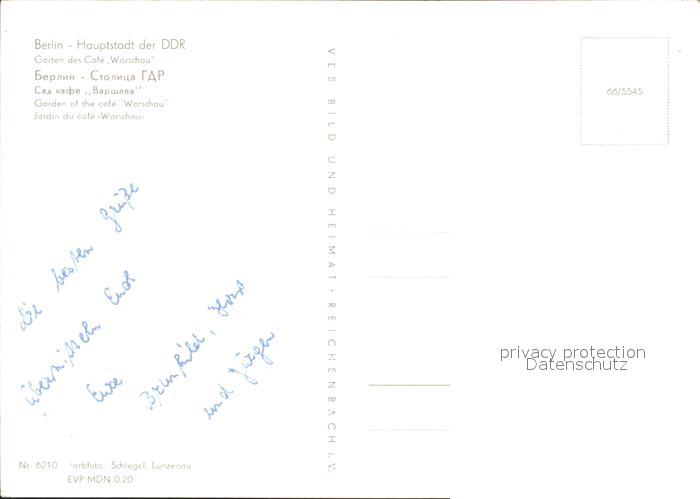 Berlin - Hauptstadt der DDR
Garten des Café „Warschau"
Берлин - Столица ГДР
Сад кафе „Варшава"
Garden of the café "Warschau"
Jardin du café «Warschau»
66/5545
VEB BILD UND HEIMAT · REICHENBACH i. V.
die besten Grüße
übermitteln Euch
Eure Brunhild, Horst
und Jürgen
privacy protection
Datenschutz
Nr. 6210 Farbfoto: Schlegel, Lunzenau
EVP MDN 0,20